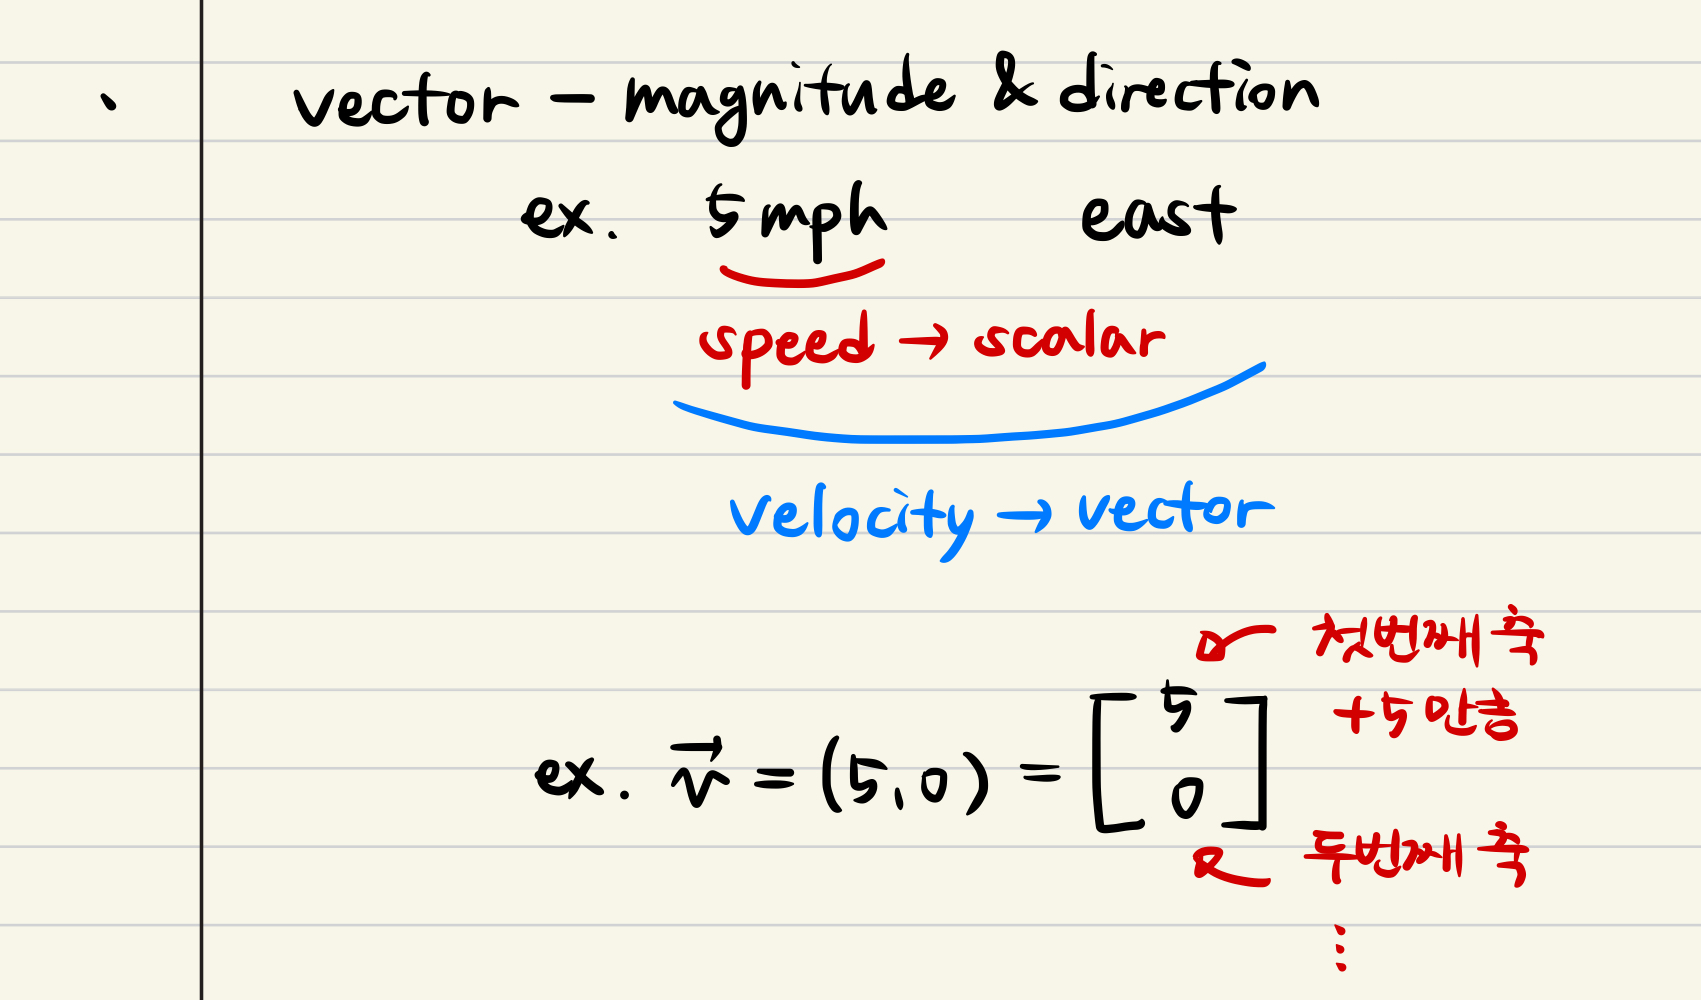 vector – magnitude & direction
ex. 5 mph east
speed → scalar
velocity → vector
첫번째 축
+5 만큼
ex. v⃗ = (5,0) = [5 0]
두번째 축
⋮